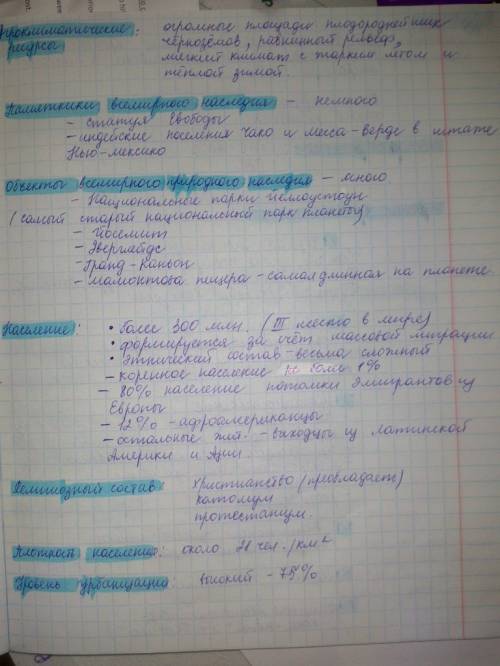 Агроклиматические ресурсы: огромные площади плодороднейших
чернозёмов, равнинный рельеф,
мягкий климат с жарким летом и
тёплой зимой.
Памятники всемирного наследия – немного
– статуя Свободы
– индейские поселения Чако и Меса-Верде в штате
Нью-Мексико
Объекты всемирного природного наследия – много
– Национальные парки Йеллоустоун
(самый старый национальный парк планеты)
– Йосемит
– Эверглейдс
– Гранд-Каньон
– Мамонтова пещера – самая длинная на планете
Население: • более 300 млн. (III место в мире)
• формируется за счёт массовой миграции
• Этнический состав – весьма сложный
– коренное население не более 1%
– 80% население потомки Эмигрантов из
Европы
– 12% – афроамериканцы
– остальные жит. – выходцы из Латинской
Америки и Азии.
Религиозный состав: христианство (преобладает)
католицизм
протестантизм.
Плотность населения: около 28 чел./км²
Уровень урбанизации: высокий – 75%